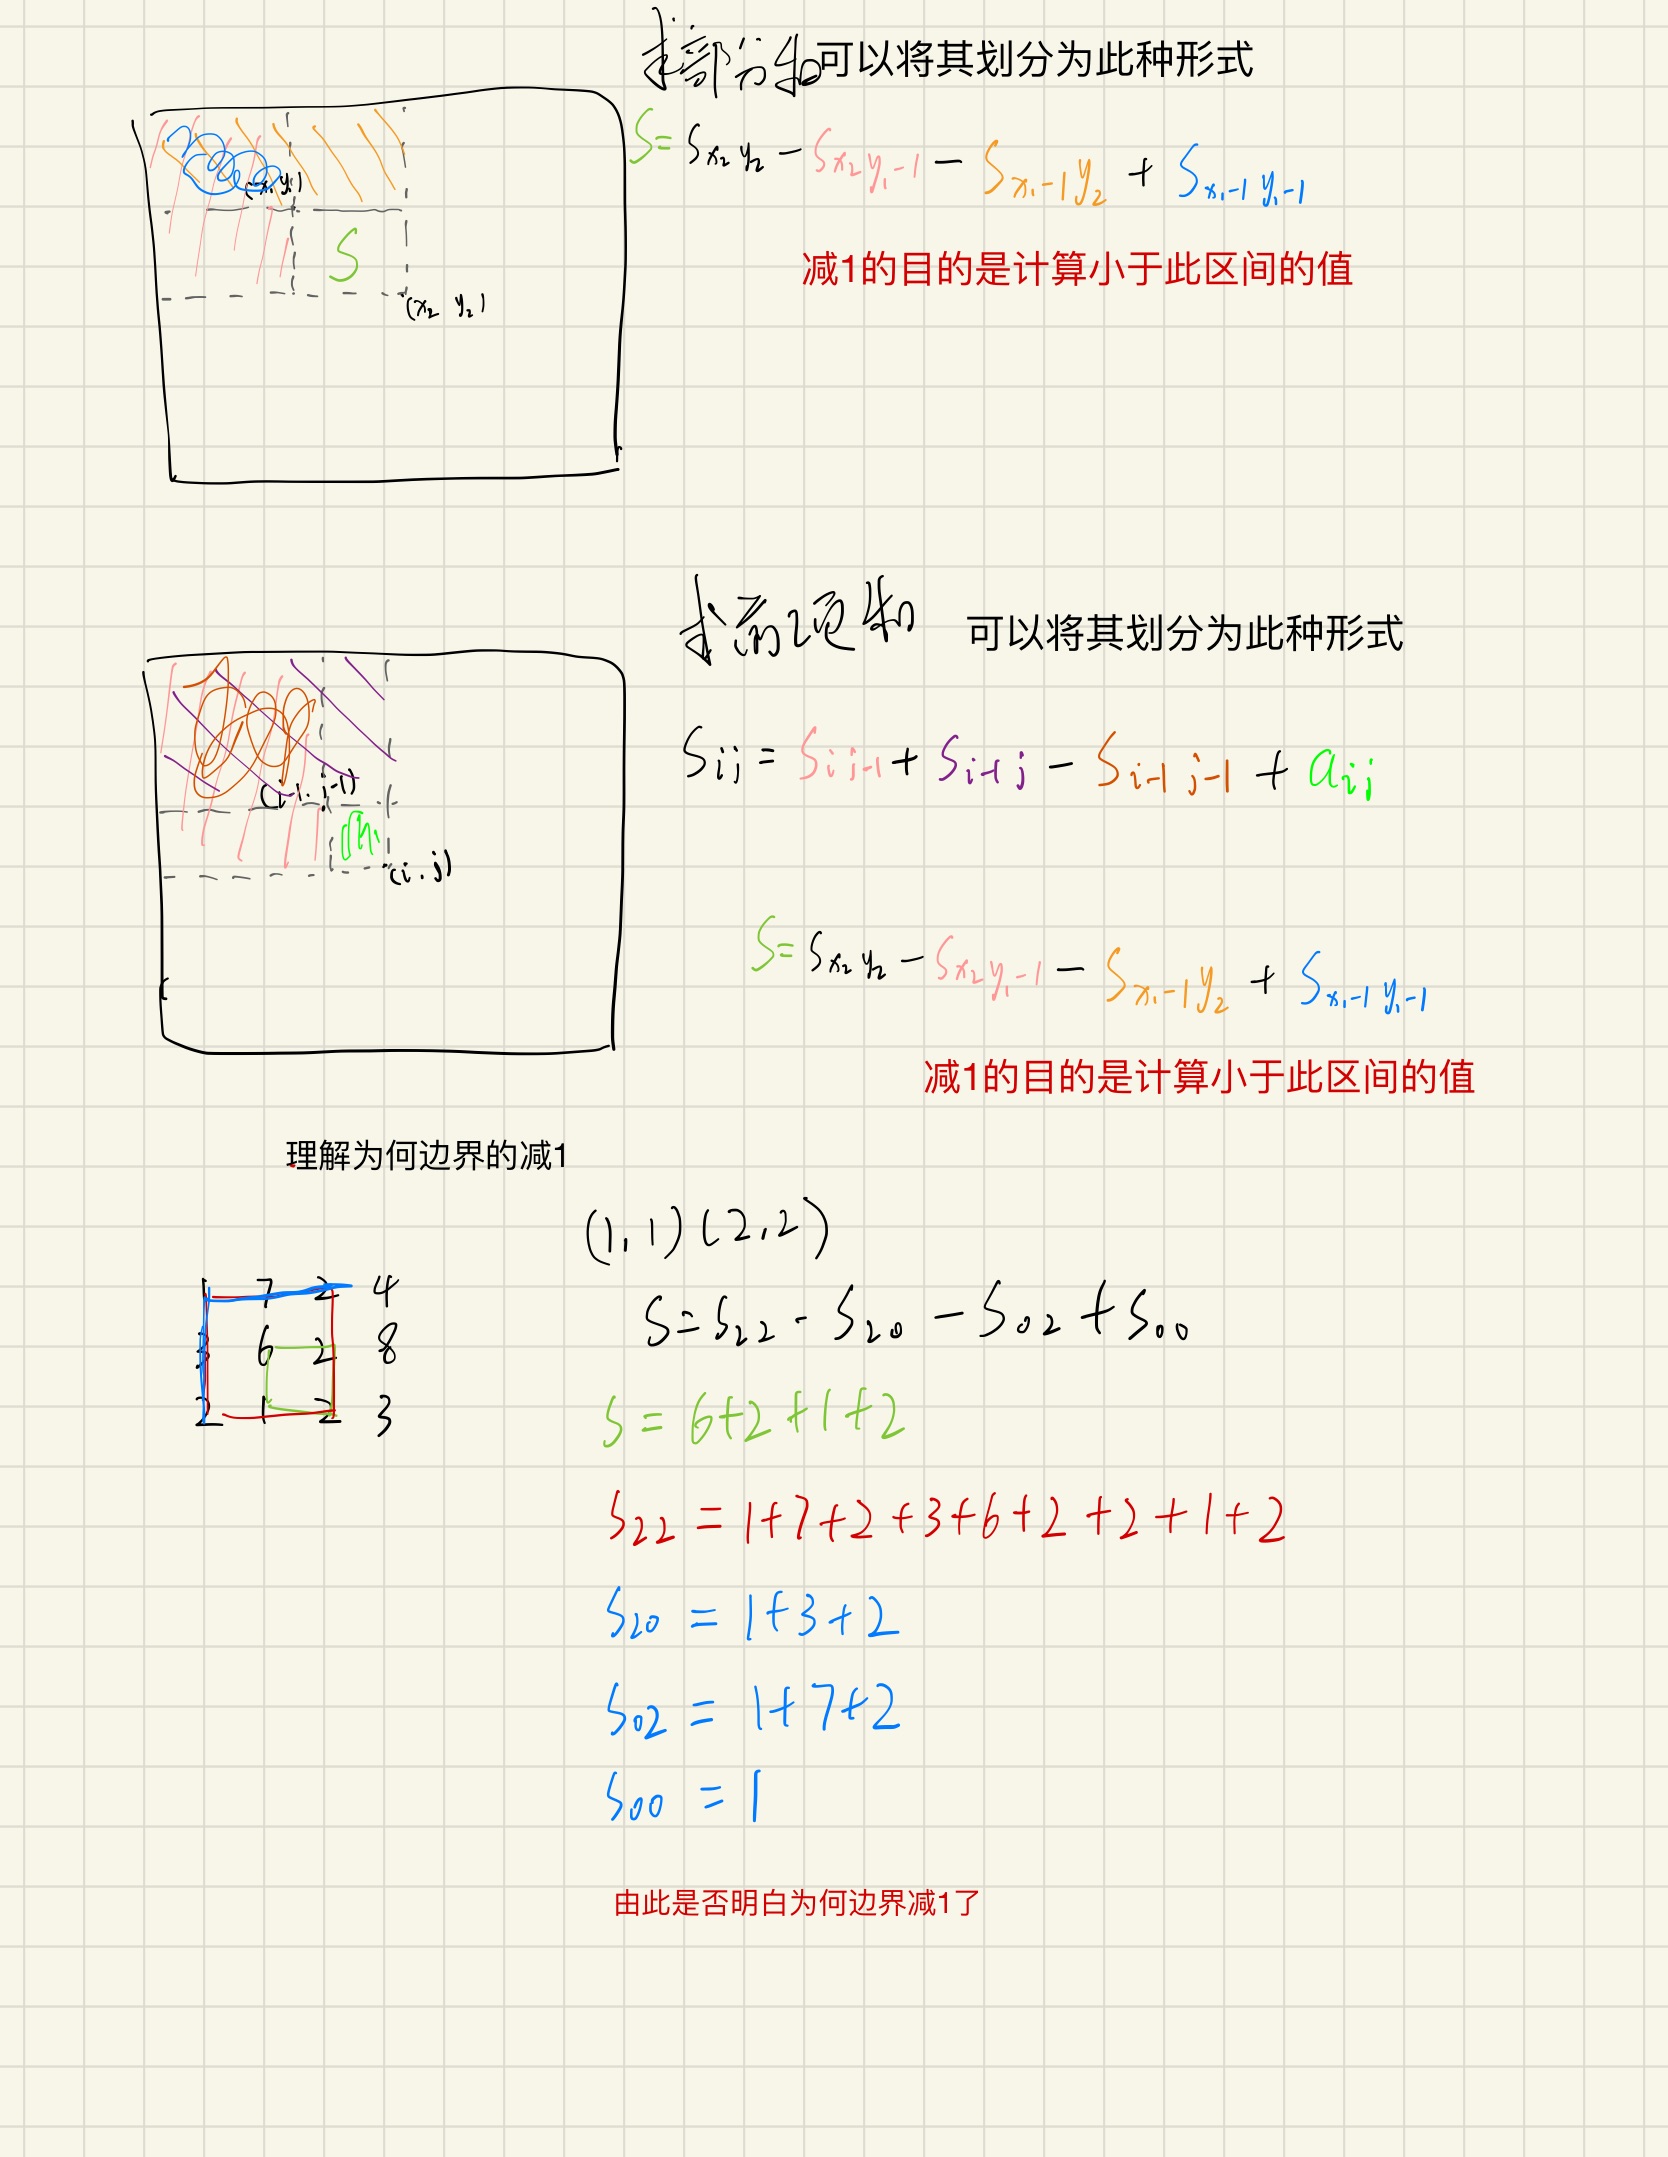 求部分和可以将其划分为此种形式
S= Sx₂y₂ - Sx₂y₁-1 - Sx₁-1y₂ + Sx₁-1y₁-1
(x₁y₁)
减1的目的是计算小于此区间的值
S
(x₂ y₂)
求前缀和 可以将其划分为此种形式
Sij = Sij-1 + Si-1j - Si-1j-1 + aij
(i-1.j-1)
(i.j)
S= Sx₂y₂ - Sx₂y₁-1 - Sx₁-1y₂ + Sx₁-1y₁-1
减1的目的是计算小于此区间的值
理解为何边界的减1
(1,1)(2,2)
1 7 2 4
3 6 2 8
2 1 2 3
S=S₂₂-S₂₀-S₀₂+S₀₀
S=6+2+1+2
S₂₂=1+7+2+3+6+2+2+1+2
S₂₀=1+3+2
S₀₂=1+7+2
S₀₀=1
由此是否明白为何边界减1了